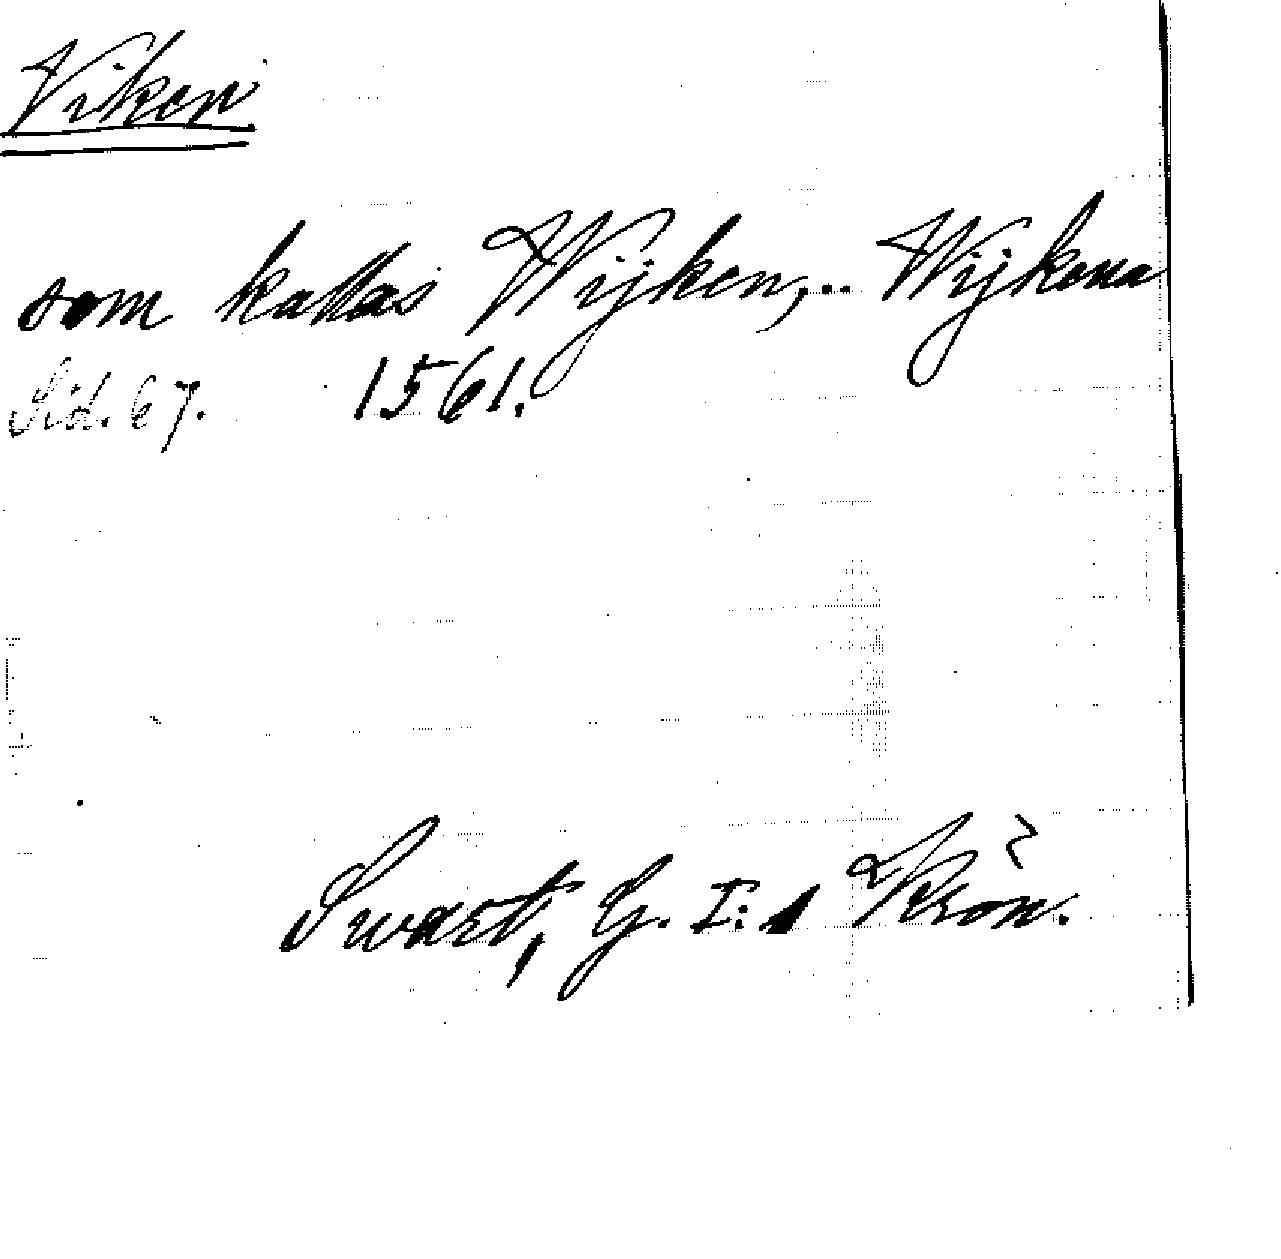 Viken
som kallas Wijken,.. Wijkena
Sid. 67. 1561.
Swart, G. I:s Krön.